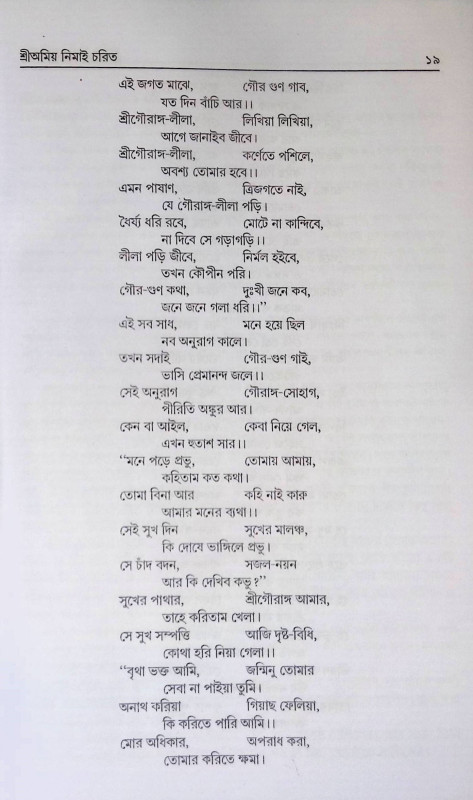 শ্রীঅমিয় নিমাই চরিত ১৯
এই জগত মাঝে, গৌর গুণ গাব,
যত দিন বাঁচি আর।।
শ্রীগৌরাঙ্গ-লীলা, লিখিয়া লিখিয়া,
আগে জানাইব জীবে।
শ্রীগৌরাঙ্গ-লীলা, কর্ণেতে পশিলে,
অবশ্য তোমার হবে।।
এমন পাষাণ, ত্রিজগতে নাই,
যে গৌরাঙ্গ-লীলা পড়ি।
ধৈর্য্য ধরি রবে, মোটে না কান্দিবে,
না দিবে সে গড়াগড়ি।।
লীলা পড়ি জীবে, নির্মল হইবে,
তখন কৌপীন পরি।
গৌর-গুণ কথা, দুঃখী জনে কব,
জনে জনে গলা ধরি।।”
এই সব সাধ, মনে হয়ে ছিল
নব অনুরাগ কালে।
তখন সদাই গৌর-গুণ গাই,
ভাসি প্রেমানন্দ জলে।।
সেই অনুরাগ গৌরাঙ্গ-সোহাগ,
পীরিতি অঙ্কুর আর।
কেন বা আইল, কেবা নিয়ে গেল,
এখন হুতাশ সার।।
“মনে পড়ে প্রভু, তোমায় আমায়,
কহিতাম কত কথা।
তোমা বিনা আর কহি নাই কারু
আমার মনের ব্যথা।।
সেই সুখ দিন সুখের মালঞ্চ,
কি দোষে ভাঙ্গিলে প্রভু।
সে চাঁদ বদন, সজল-নয়ন
আর কি দেখিব কভু?”
সুখের পাথার, শ্রীগৌরাঙ্গ আমার,
তাহে করিতাম খেলা।
সে সুখ সম্পত্তি আজি দুষ্ট-বিধি,
কোথা হরি নিয়া গেলা।।
“বৃথা ভক্ত আমি, জন্মিনু তোমার
সেবা না পাইয়া তুমি।
অনাথ করিয়া গিয়াছ ফেলিয়া,
কি করিতে পারি আমি।।
মোর অধিকার, অপরাধ করা,
তোমার করিতে ক্ষমা।